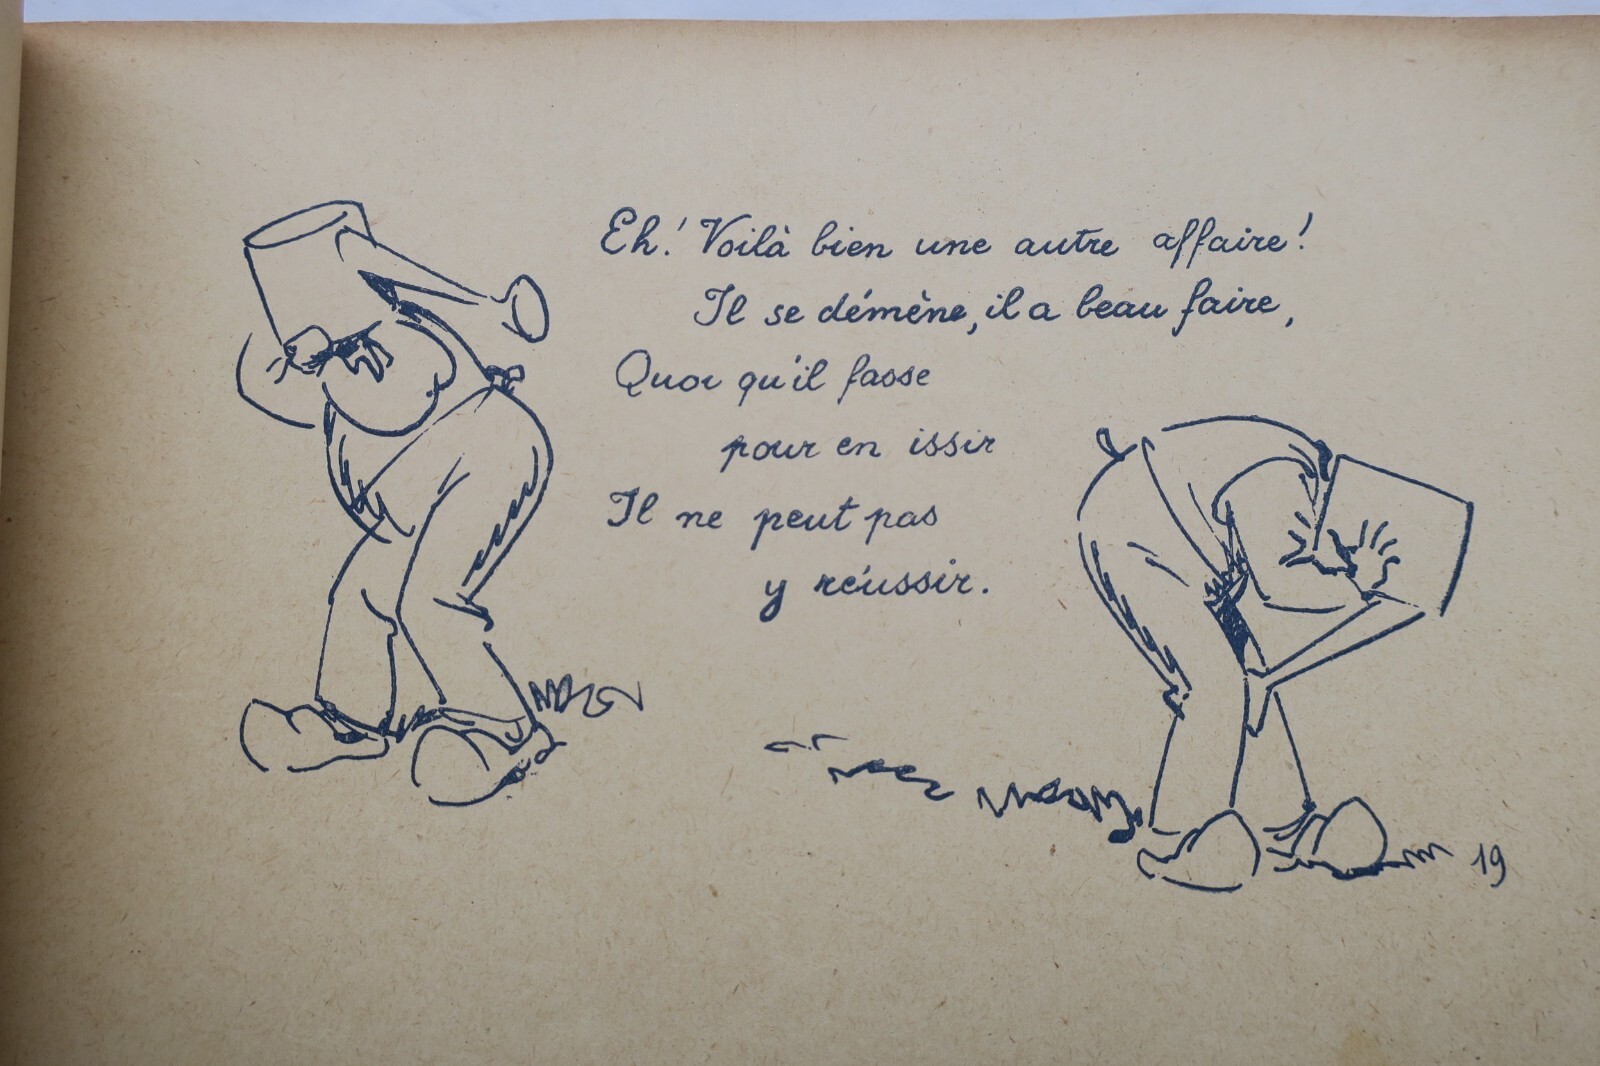 Eh! Voilà bien une autre affaire!
Il se démène, il a beau faire,
Quoi qu'il fasse
pour en issir
Il ne peut pas
y réussir.
19